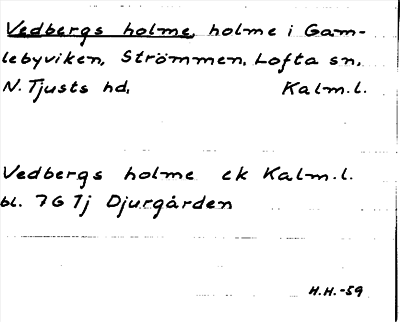 Vedbergs holme, holme i Gam-
lebyviken, Strömmen, Lofta sn,
N. Tjusts hd, Kalm.l.
Vedbergs holme ek Kalm.l.
bl. 7G7j Djurgården
H.H.-59